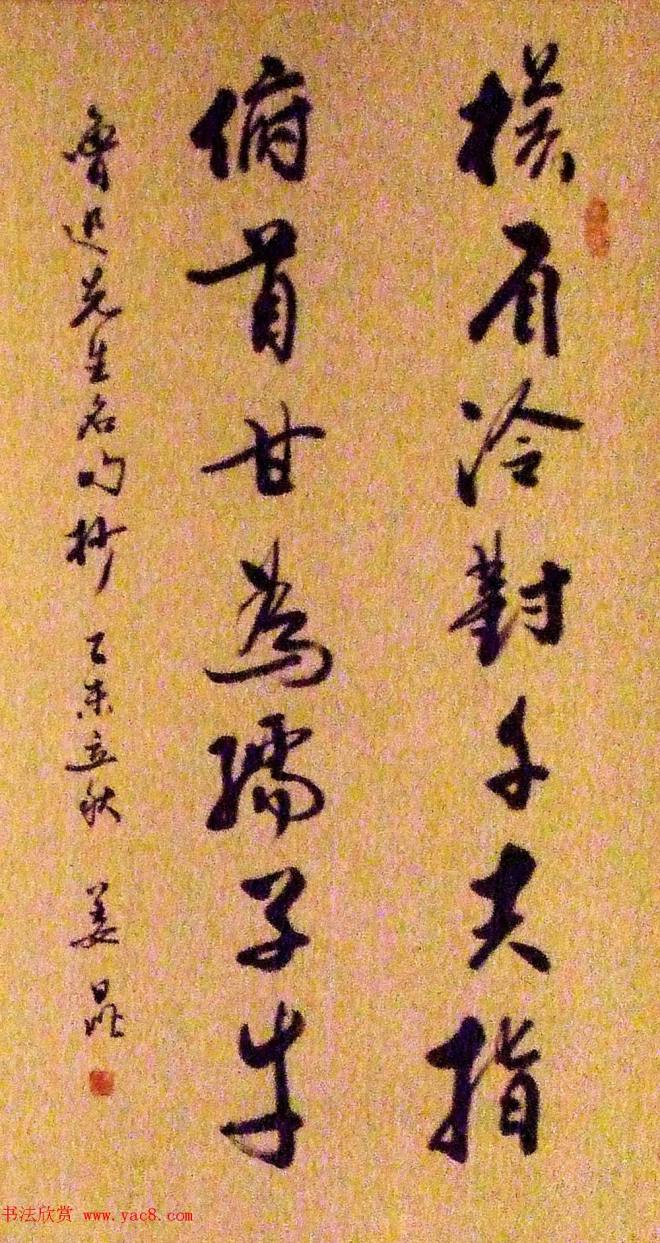 橫眉冷對千夫指
俯首甘為孺子牛
魯迅先生名句抄 乙未立秋 姜昆
书法欣赏 www.yac8.com